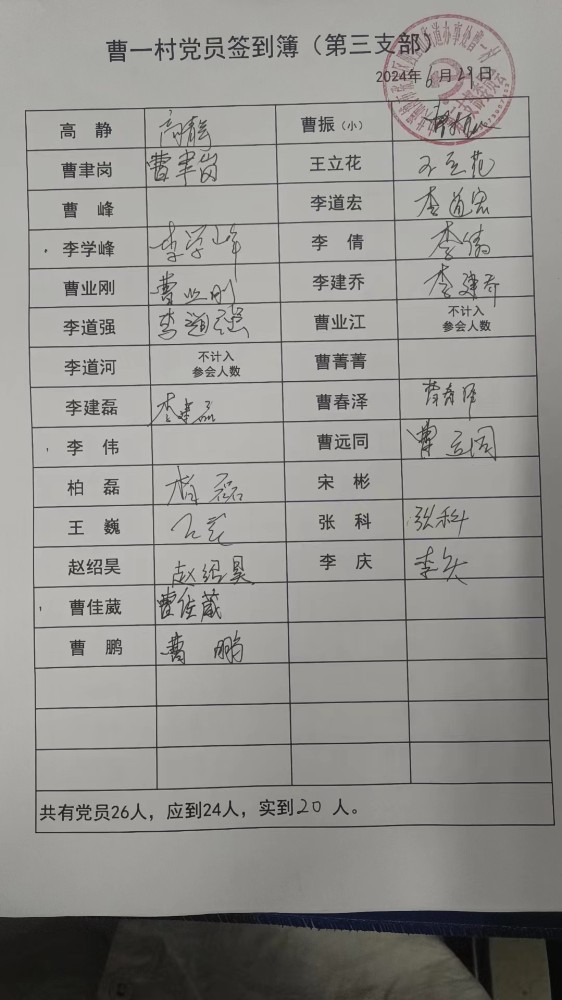 曹一村党员签到簿（第三支部）
2024年6月29日
高 静 高静 曹振（小） 曹振
曹聿岗 曹聿岗 王立花 王立花
曹 峰 李道宏 李道宏
李学峰 李学峰 李 倩 李倩
曹业刚 曹业刚 李建乔 李建乔
李道强 李道强 曹业江 不计入
参会人数
李道河 不计入
参会人数 曹菁菁
李建磊 李建磊 曹春泽 曹春泽
李 伟 曹远同 曹远同
柏 磊 柏磊 宋 彬
王 巍 张 科 张科
赵绍昊 赵绍昊 李 庆 李庆
曹佳葳 曹佳葳
曹 鹏 曹 鹏
共有党员26人，应到24人，实到20人。